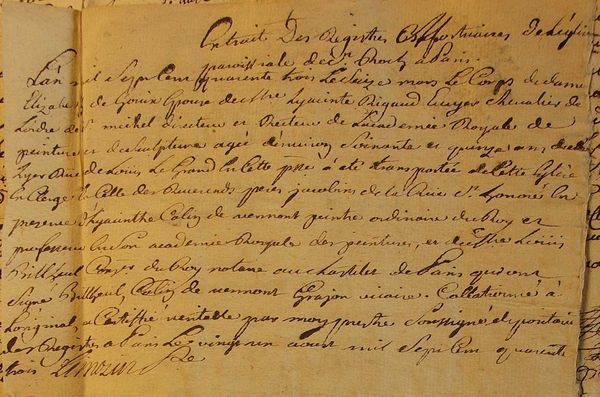 Extrait Des Registres Mortuaires de L'église
paroissiale de St Roch à Paris.
L'an mil Sept Cent quarante trois Le Seize mars Le Corps de dame
Elizabeth de Gouix Epouse de Mre hyacinte Rigaud Ecuyer Chevalier de
L'ordre de St michel directeur et Recteur de L'academie Royale de
peinture et de Sculpture agée d'environ Soixante et quinze ans
hyer Rue de Loüis Le Grand En Cette psse a été transportée de Cette Eglise
En Celle des Reverends peres jacobins de la Rue St honoré En
presence d'hyacinthe Colin de vermont peintre ordinaire du Roy et
professeur En Son academie Royale des peintures, et de Mre Loüis
Billeul Conser du Roy notaire au chastelet de Paris qui ont
Signé Billeul, Colin de vermont Grajon vicaire. Collationné à
L'original et Certiffié veritable par moy prestre Soussigné depositaire
des Registres a Paris Le vingt un aoust mil Sept Cent quarante
trois